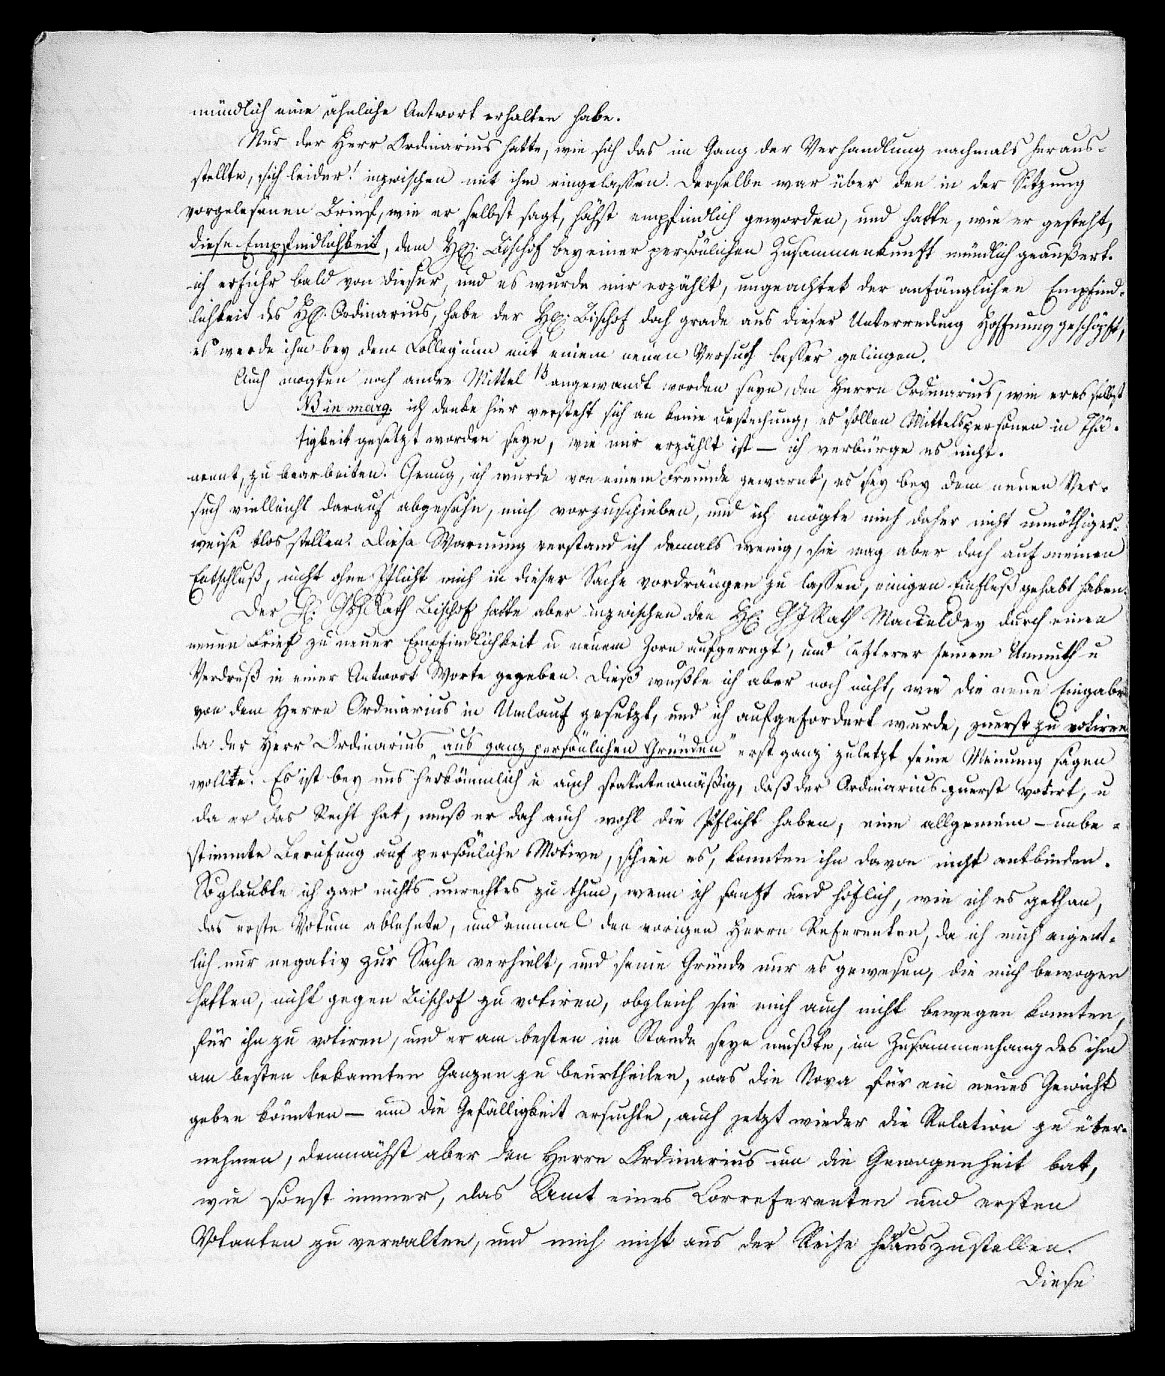 mündlich eine ähnliche Antwort erhalten habe.
Nur der Herr Ordinarius hatte, wie sich das im Gang der Verhandlung nachmals heraus-
stellte, sich leider! inzwischen mit ihm eingelassen. Derselbe war über den in der Sitzung
vorgelesenen Brief, wie er selbst sagt, höchst empfindlich geworden, und hatte, wie er gesteht,
diese Empfindlichkeit, dem H. Bischof bey einer persönlichen Zusammenkunft mündlich geäußert.
ich erfuhr bald von dieser, und es wurde mir erzählt, ungeachtet der anfänglichen Empfind-
lichkeit des H. Ordinarius, habe der H. Bischof doch grade aus dieser Unterredung Hoffnung geschöpft,
es werde ihm bey dem Collegium mit einem neuen Versuch besser gelingen.
Auch mogten noch andre Mittel angewandt worden seyn, den Herrn Ordinarius, wie er es selbst
NB in marg. ich denke hier versteht sich an keine Bestechung, es sollen Mittelspersonen in Thä-
tigkeit gesetzt worden seyn, wie mir erzählt ist — ich verbürge es nicht.
nennt, zu bearbeiten. Genug, ich wurde von einem Freunde gewarnt, es sey bey dem neuen Ver-
such vielleicht darauf abgesehn, mich vorzuschieben, und ich mögte mich daher nicht unnöthiger-
weise blos stellen. Diese Warnung verstand ich damals wenig, sie mag aber doch auf meinen
Entschluß, nicht ohne Pflicht mich in dieser Sache vordrängen zu lassen, einigen Einfluß gehabt haben.
Der H. Rath Bischof hatte aber inzwischen den H. GJRath Mackeldey durch einen
neuen Brief zu neuer Empfindlichkeit u neuem Zorn aufgeregt, und letzterer seinem Unmuth u
Verdruß in einer Antwort Worte gegeben. Dieß wußte ich aber noch nicht, wie die neue Eingabe
von dem Herrn Ordinarius in Umlauf gesetzt, und ich aufgefordert wurde, zuerst zu votiren
da der Herr Ordinarius „aus ganz persönlichen Gründen" erst ganz zuletzt seine Meinung sagen
wollte. Es ist bey uns herkömmlich u auch statutenmäßig, daß der Ordinarius zuerst votirt, u
da er das Recht hat, muß er doch auch wohl die Pflicht haben, eine allgemein – unbe-
stimmte Berufung auf persönliche Motive, schien es, konnten ihn davon nicht entbinden.
So glaubte ich gar nichts unrechtes zu thun, wenn ich sanft und höflich, wie ich es gethan,
das erste Votum ablehnte, und einmal den vorigen Herrn Referenten, da ich mich eigent-
lich nur negativ zur Sache verhielt, und seine Gründe nur es gewesen, die mich bewogen
hatten, nicht gegen Bischof zu votiren, obgleich sie mich auch nicht bewegen konnten,
für ihn zu votiren, und er am besten im Stande seyn mußte, im Zusammenhang des ihm
am besten bekannten Ganzen zu beurtheilen, was die Nova für ein neues Gewicht
geben könnten — um die Gefälligkeit ersuchte, auch jetzt wieder die Relation zu über-
nehmen, demnächst aber den Herrn Ordinarius um die Gewogenheit bat,
wie sonst immer, das Amt eines Correferenten und ersten
Votanten zu verwalten, und mich nicht aus der Reihe herauszustellen.
Diese